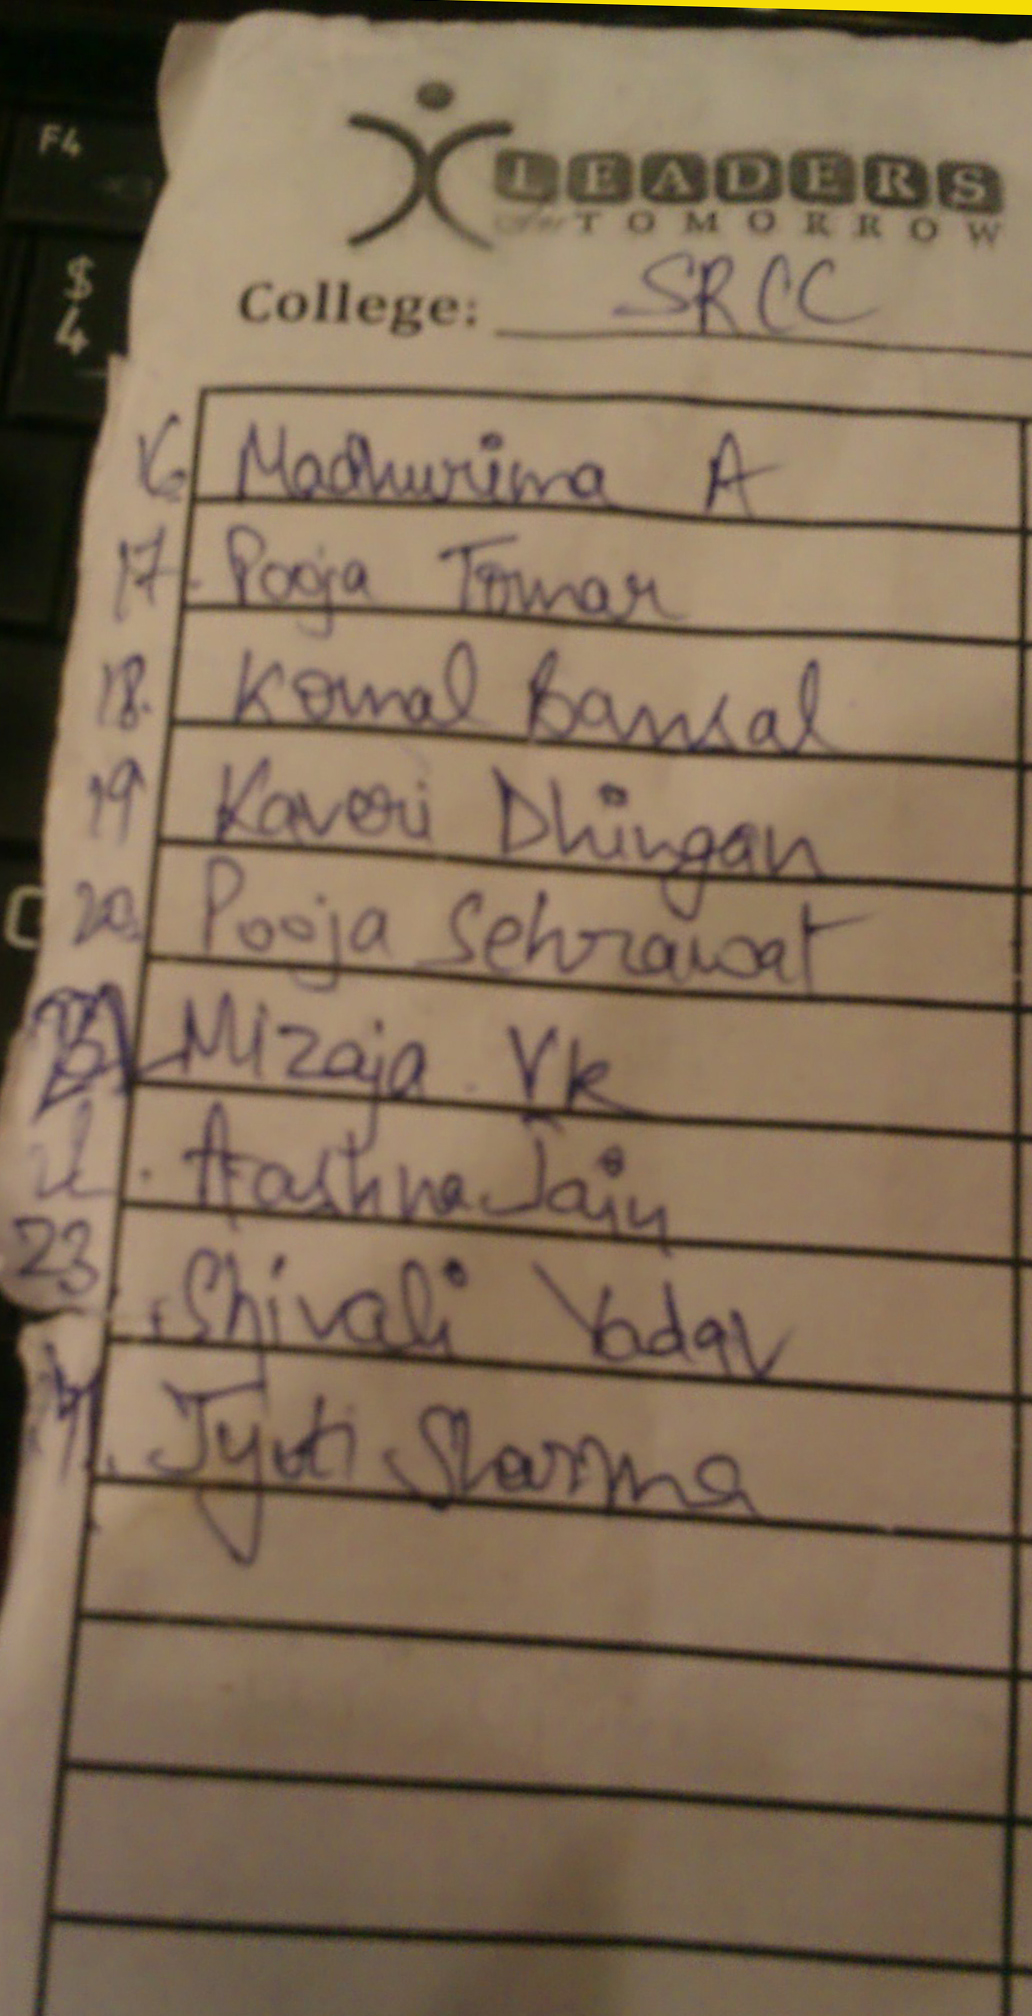 F4
$
4
LEADERS
TOMORROW
College: SRCC
16. Madhurima A
17. Pooja Tomar
18. Komal Bansal
19 Kaveri Dhingan
20. Pooja Sehrawat
Mizaja Vk
Aashna Jain
23 Shivali Yadav
Jyoti Sharma